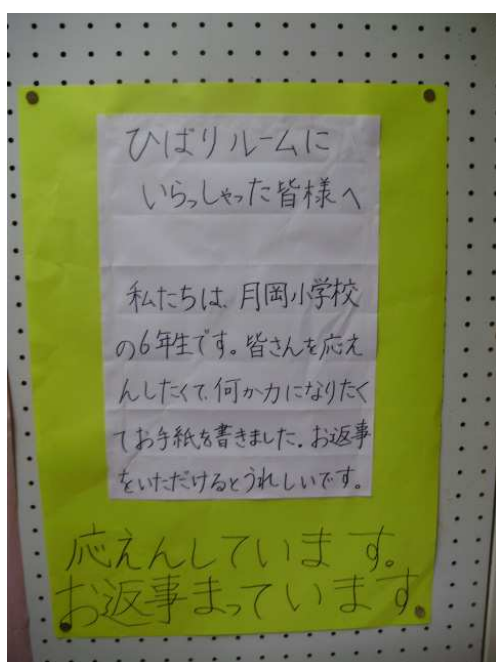 ひばりルームに
いらっしゃった皆様へ
私たちは、月岡小学校
の6年生です。皆さんを応え
んしたくて、何か力になりたく
てお手紙を書きました。お返事
をいただけるとうれしいです。
応えんしています。
お返事まっています